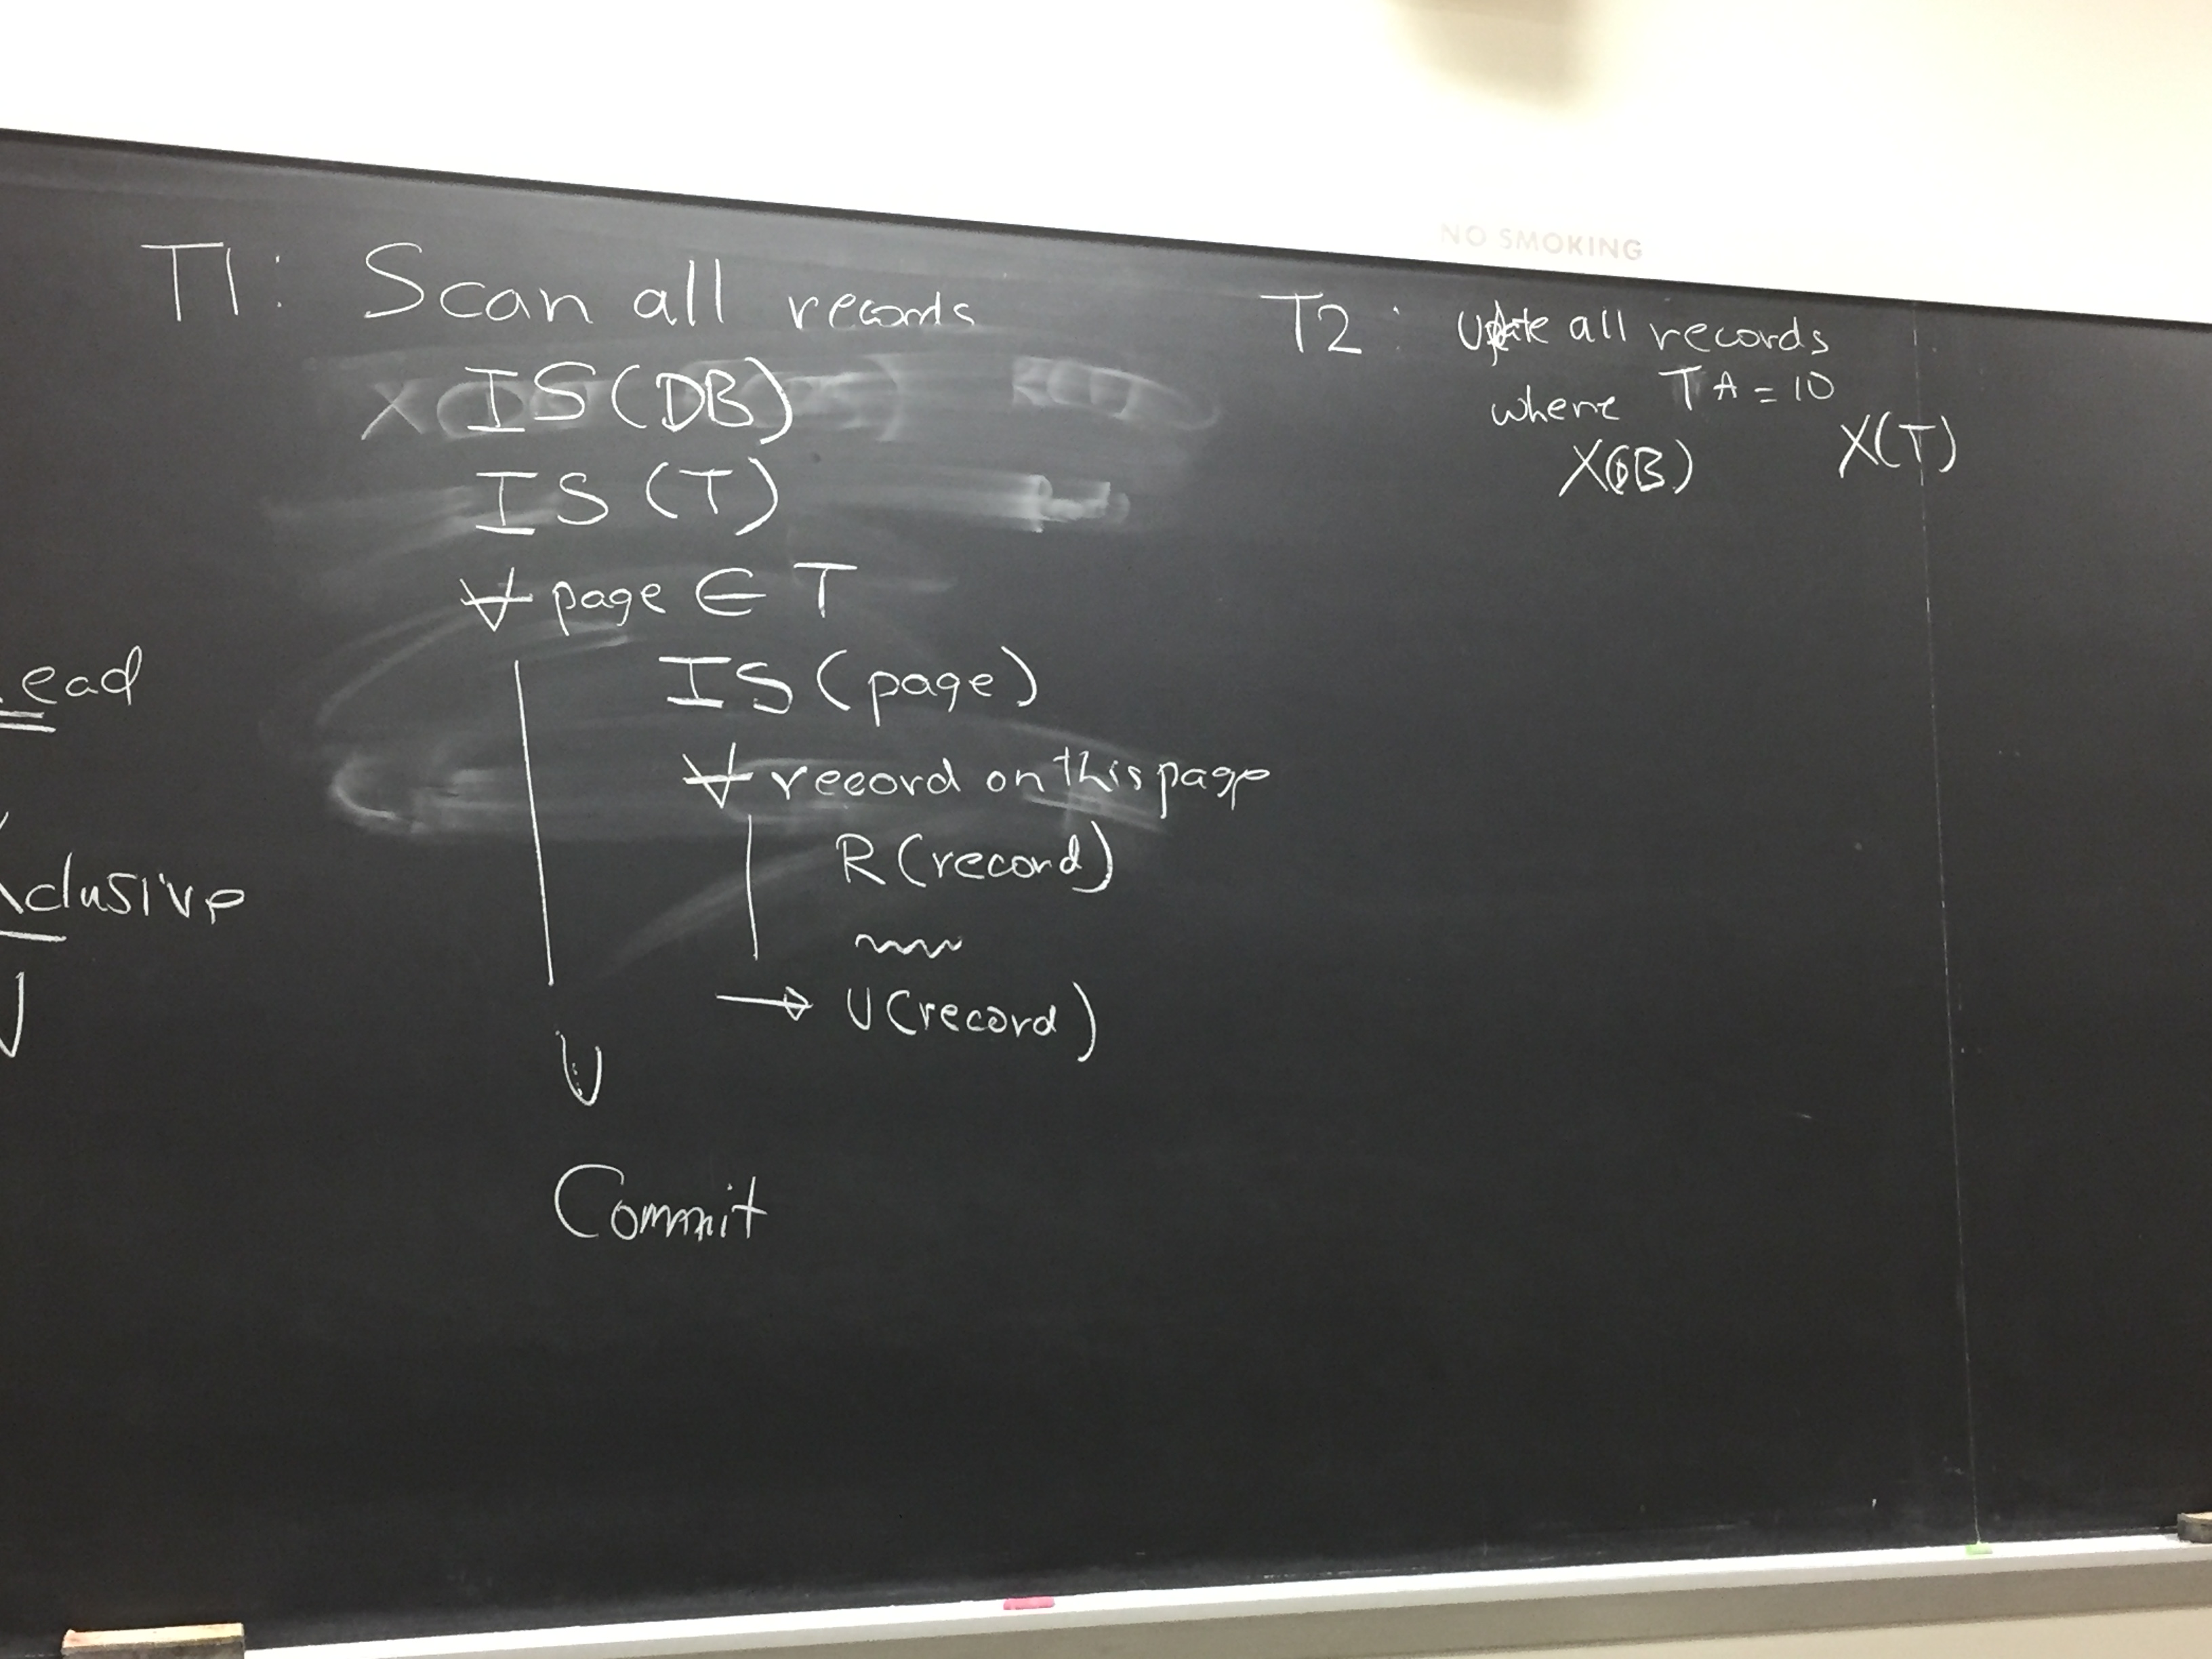 NO SMOKING
T1: Scan all records
X IS(DB)
IS(T)
∀ page ∈ T
IS(page)
∀ record on this page
R(record)
→ U(record)
U
Commit
T2: Update all records
where T A = 10
X(DB) X(T)
ead
xclusive